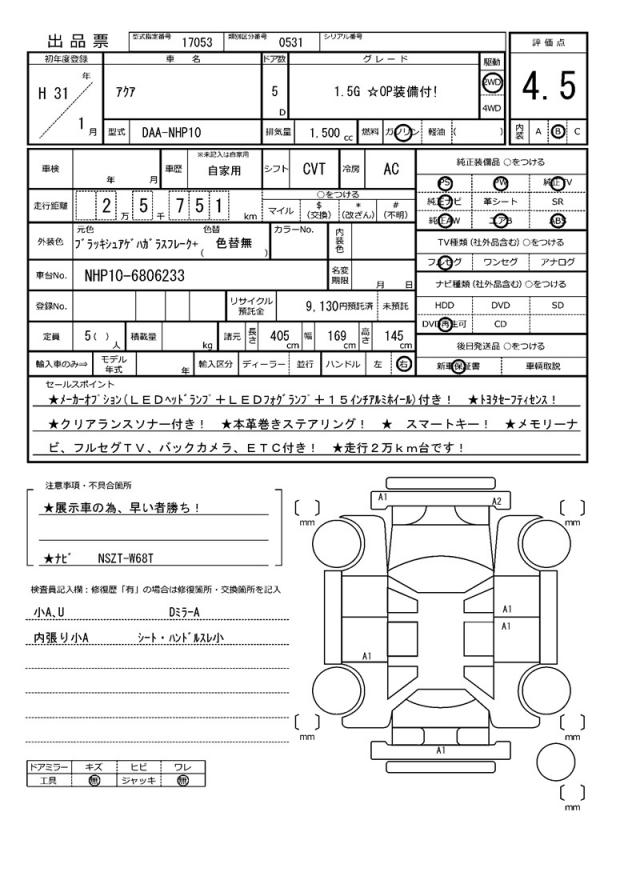 出品票 型式指定番号 17053 類別区分番号 0531 シリアル番号
評価点
4.5
内装 A B C
初年度登録 車名 ドア数 グレード 駆動
H 31 年 1 月
アクア 5 D 1.5G ☆OP装備付! 2WD 4WD
型式 DAA-NHP10 排気量 1.500 cc 燃料 ガソリン 軽油 ( )
車検 年 月 車歴 ※未記入は自家用 自家用 シフト CVT 冷房 AC
走行距離 2 万 5 千 7 5 1 km
○をつける
マイル $(交換) *(改ざん) #(不明)
外装色 元色 ブラッキシュアゲハガラスフレーク+ 色替 ( 色替無 ) カラーNo. 内装色
車台No. NHP10-6806233 名変期限 月 日
登録No. リサイクル預託金 9,130円預託済 未預託
定員 5( )人 積載量 kg 諸元 長さ 405cm 幅 169cm 高さ 145cm
輸入車のみ⇒ モデル年式 年 輸入区分 ディーラー 並行 ハンドル 左 右
純正装備品 ○をつける
PS PW 純正TV
純正ナビ 革シート SR
純正AW エアB ABS
TV種類(社外品含む)○をつける
フルセグ ワンセグ アナログ
ナビ種類(社外品含む)○をつける
HDD DVD SD
DVD再生可 CD
後日発送品 ○をつける
新車保証書 車輌取説
セールスポイント
★メーカーオプション(LEDヘッドランプ+LEDフォグランプ+15インチアルミホイール)付き! ★トヨタセーフティセンス!
★クリアランスソナー付き! ★本革巻きステアリング! ★ スマートキー! ★メモリーナ
ビ、フルセグTV、バックカメラ、ETC付き! ★走行2万km台です!
注意事項・不具合箇所
★展示車の為、早い者勝ち!
★ナビ NSZT-W68T
検査員記入欄:修復歴「有」の場合は修復箇所・交換箇所を記入
小A、U Dミラ-A
内張り小A シート・ハンドルスレ小
ドアミラー キズ ヒビ ワレ
工具 無 ジャッキ 無
A1 A2
mm mm
A1
A1
A1
mm mm
A1
mm